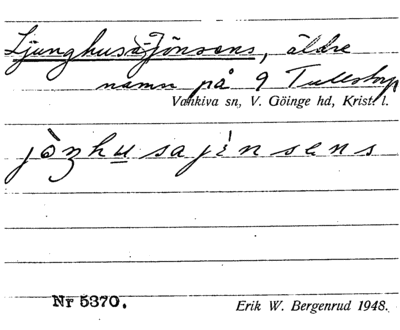 Ljunghusa-Jönsens, äldre
namn på 9 Tullstorp
Vankiva sn, V. Göinge hd, Krist. l.
jònhusajènsens
Nr 5370.
Erik W. Bergenrud 1948.